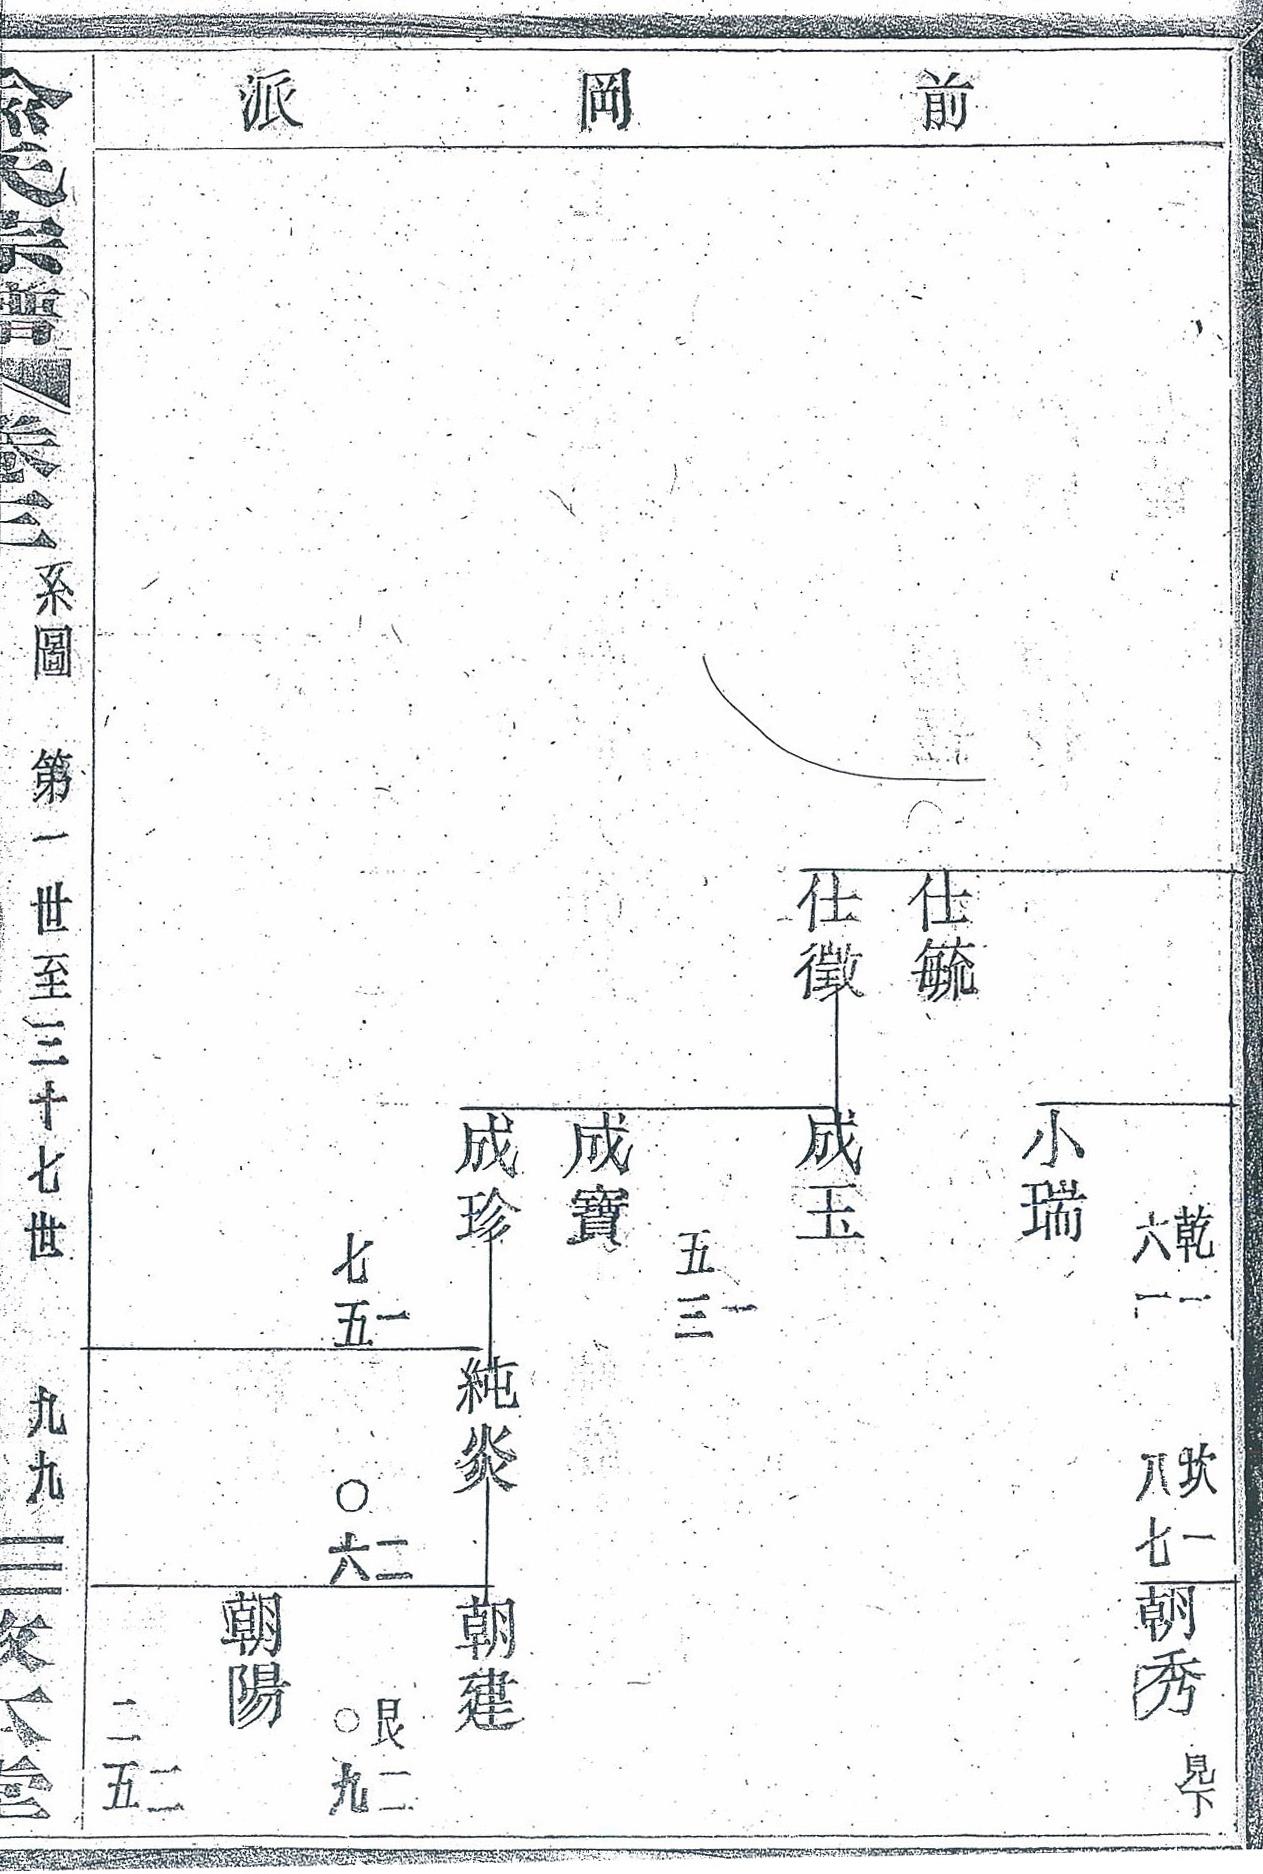 前岡派
仕毓
仕徵
小瑞
成玉
成寶
成珍
乾一
六一
一
五三
一
七五
純炎
坎一
八七
二
〇六
朝秀
見下
朝建
朝陽
艮二
〇九
二
二五
俞氏宗譜 卷三 系圖 第一世至三十七世 九九